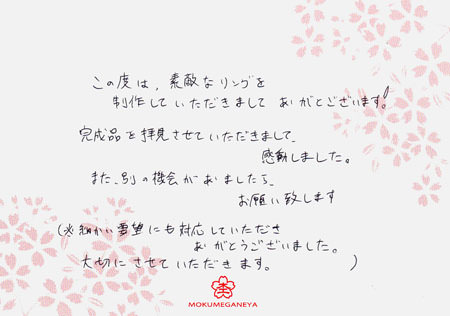 この度は、素敵なリングを
制作していただきまして ありがとございます!
完成品を拝見させていただきまして、
感動しました。
また、別の機会がありましたら、
お願い致します
(※細かい要望にも対応していただき
ありがとうございました。
大切にさせていただきます。 )
MOKUMEGANEYA